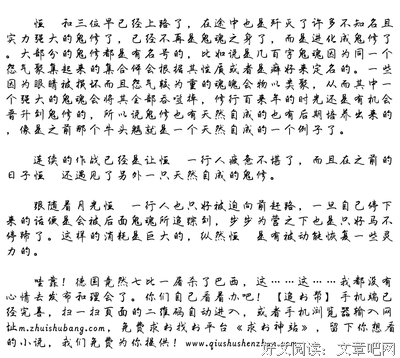 恒　和三位早已经上路了，在途中也是歼灭了许多不知名且
实力强大的鬼修了，已经不再是鬼魂之身了，而是进化成鬼修了
。大部分的鬼修都是有名号的，比如说是几百字鬼魂因为同一个
怨气聚集起来的集合体会根据其性质或者是癖好来定名的。一些
因为眼睛被損坏而且怨气较为重的魂魄会物以类聚，从而其中一
个强大的鬼魂会将其全部吞噬掉，修行百来年的时光还是有机会
晋升到鬼修的，所以说鬼修也有天然自成的也有后期培养出来的
，像是之前那个牛头魈就是一个天然自成的一个例子了。
连续的作战已经是让恒　一行人疲惫不堪了，而且在之前的
日子恒　还遇见了另外一只天然自成的鬼修。
跟随着月光恒　一行人也只好被迫向前赶路，一旦自己停下
来的话便是会被后面鬼魂所追踪到，步步为营之下也是只好马不
停蹄了。这样的消耗是巨大的，纵然恒　是有被动能恢复一些灵
力的。
哇靠！德国竟然七比一屠杀了巴西，这……这……我都没有
心情去发布和理会了。你们自己看着办吧！【追书帮】手机端已
经完善，扫一扫页面的二维码自动进入，或者手机浏览器输入网
址m.zhuishubang.com，免费求书找书平台《求书神站》，留下你想看
的小说，我们免费为你提供！www.qiushushenzhan.com
好文阅读：文章吧网